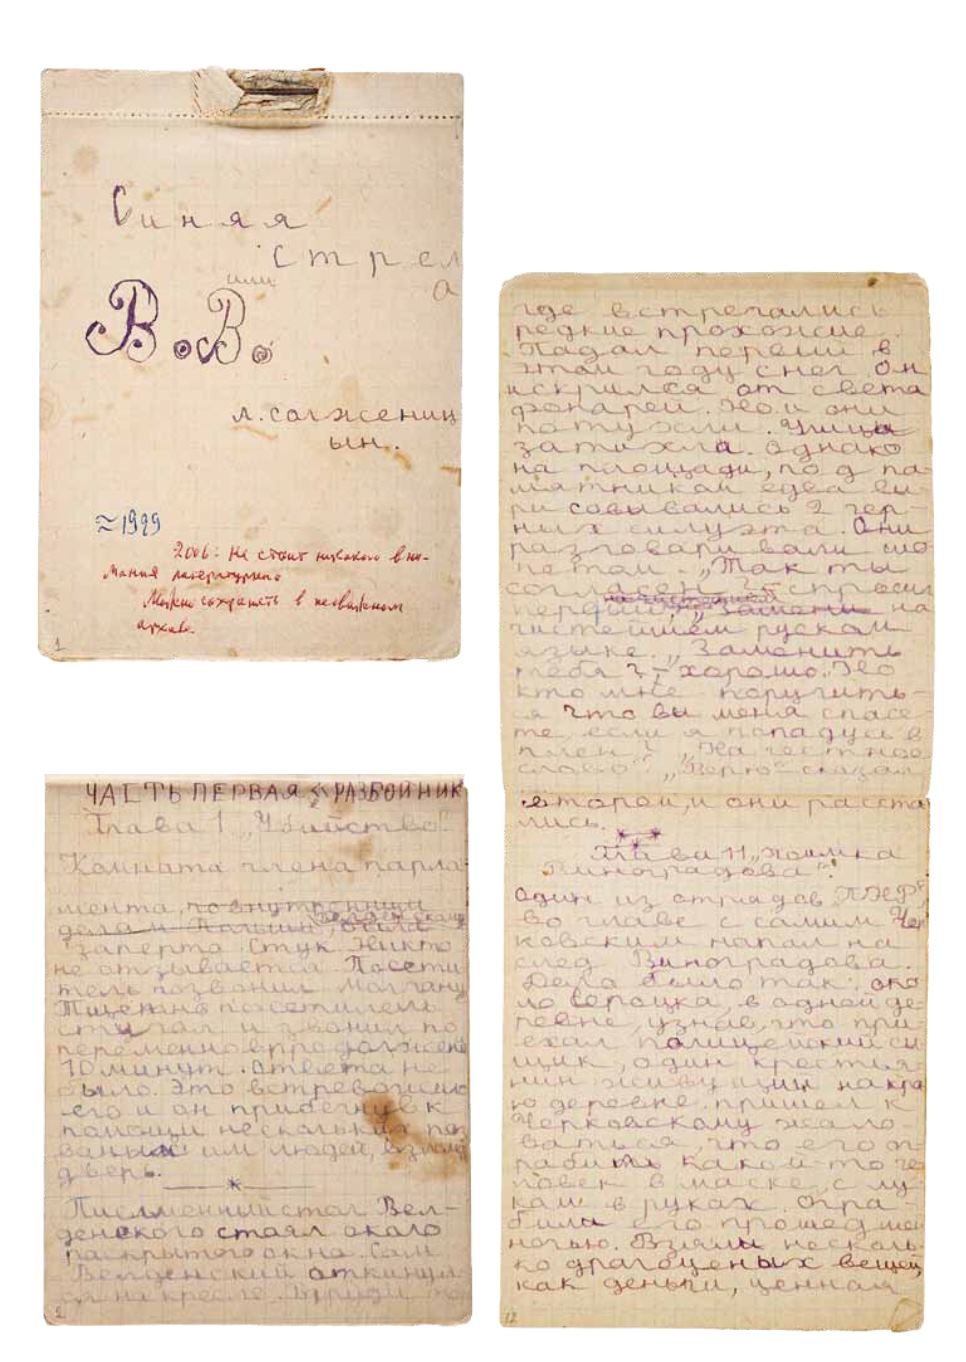 Синяя
Стрел
а
или
В.В.
л. солжениц
ын.
≈1929
2006: Не стоит никакого вни-
мания литературного
Можно сохранять в неважном
архиве.
1
ЧАСТЬ ПЕРВАЯ „РАЗБОЙНИК
Глава 1 „Убийство"
Комната члена парла-
мента, по внутренним
делам Польши, Велденского была
заперта. Стук. Никто
не отзывается. Посети
тель позвонил. Молчание
Тщетно посетитель
стучал и звонил по
переменно в продолжение
10 минут. ответа не
было. Это встревожило
его и он прибегнув к
помощи нескольких поз
ванных им людей, взломал
дверь.
Письменный стол Вел-
денского стоял около
раскрытого окна. Сам
Велденский откинул
ся на кресле. В груди
2
где встречались
редкие прохожие.
Падал первый в
этом году снег. Он
искрился от света
фонарей. Но и они
потухли. Улица
затихла. Однако
на площади, под па-
мятником едва ви-
рисовывались 2 чер-
ных силуэта. Они
разговаривали шо
потом. „Так ты
согласен?" спросил
первый, „Замени на
чистейшем руском
языке. „Заменить
тебя? - хорошо. Но
кто мне поручить-
ся что вы меня спасе
те, если я попадусь в
плен? „На честное
слово". „Верю" сказал
второй, и они расста
лись.
Глава 11 „поимка
Виноградова".
Один из отрядов П.К.Ф.
во главе с самим Чер
ковским напал на
след Виноградова.
Дело было так: око
ло Сероцка, в одной де-
ревне, узнав, что при-
ехал полицейский сы
щик, один крестья-
нин живущий на кра
ю деревне пришел к
Черковскому жало-
ваться, что его о-
грабить какой-то че
ловек в маске, с лу-
ком в руках. Огра-
били его прошедшей
ночью. Взяли несколь-
ко драгоценых вещей,
как деньги, ценная
12